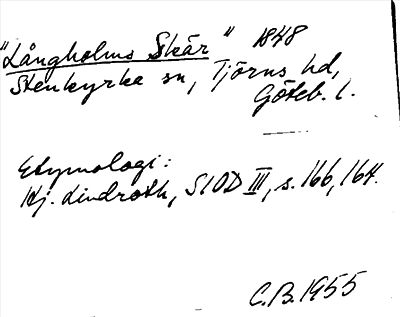 "Långholms Skär" 1848
Stenkyrka sn, Tjörns hd,
Göteb. l.
Etymologi:
Hj. Lindroth, SIOD III, s. 166, 164.
C.B. 1955